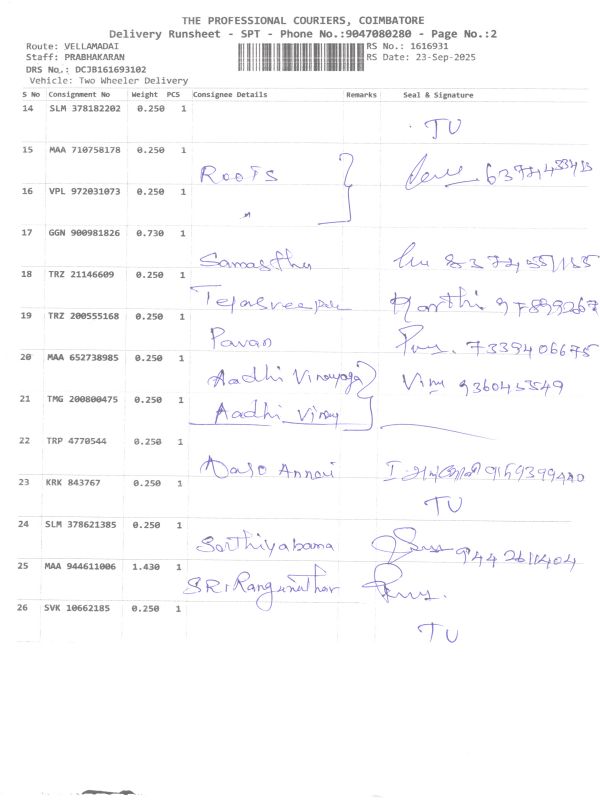 THE PROFESSIONAL COURIERS, COIMBATORE
Delivery Runsheet - SPT - Phone No.:9047080280 - Page No.:2
Route: VELLAMADAI RS No.: 1616931
Staff: PRABHAKARAN RS Date: 23-Sep-2025
DRS No.: DCJB161693102
Vehicle: Two Wheeler Delivery
S No Consignment No Weight PCS Consignee Details Remarks Seal & Signature
14 SLM 378182202 0.250 1
TU
15 MAA 710758178 0.250 1
Roots
16 VPL 972031073 0.250 1
17 GGN 900981826 0.730 1
Samastha
18 TRZ 21146609 0.250 1
Tejasree Karthi
19 TRZ 200555168 0.250 1
Pavan 7339406675
20 MAA 652738985 0.250 1
Aadhi Vinayaga 9360455549
21 TMG 200800475 0.250 1
Aadhi Vinay
22 TRP 4770544 0.250 1
Annai
23 KRK 843767 0.250 1
TU
24 SLM 378621385 0.250 1
Sathiyabama
25 MAA 944611006 1.430 1
SRI Ranganathar
26 SVK 10662185 0.250 1
TU